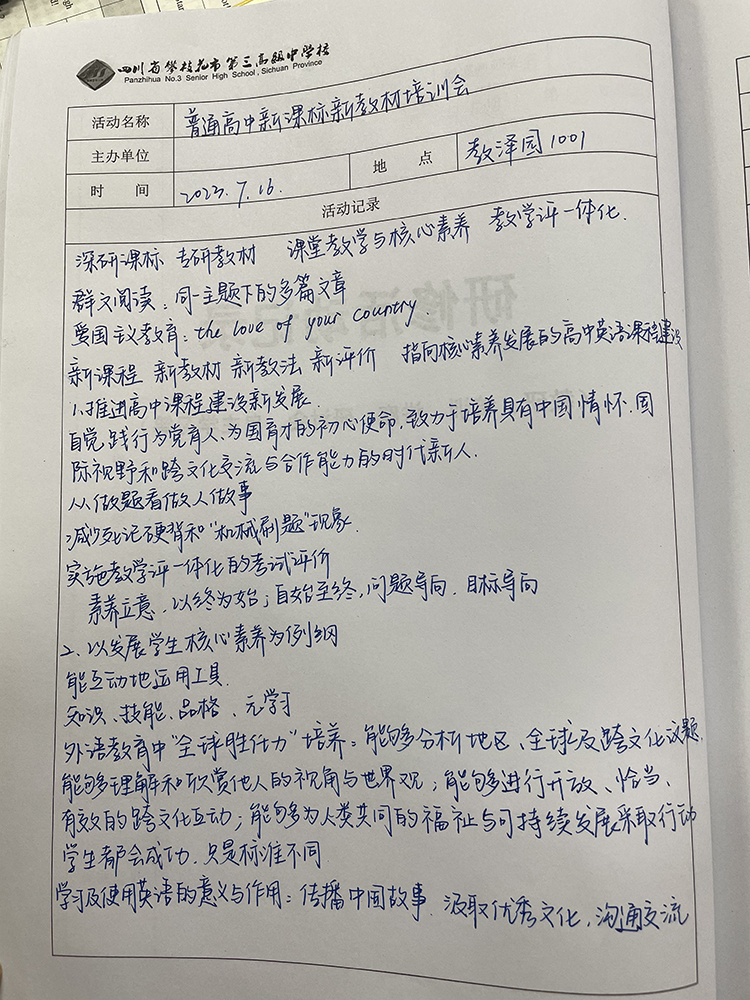 四川省攀枝花市第三高级中学校
Panzhihua No.3 Senior High School, Sichuan Province
活动名称 普通高中新课标新教材培训会
主办单位
时 间 2023.7.16. 地 点 教泽园1001
活动记录
深研课标 专研教材 课堂教学与核心素养 教学评一体化.
群文阅读：同一主题下的多篇文章
爱国主义教育：the love of your country.
新课程 新教材 新教法 新评价 指向核心素养发展的高中英语课程建设
1.推进高中课程建设新发展.
自觉践行为党育人、为国育才的初心使命,致力于培养具有中国情怀.国
际视野和跨文化交流与合作能力的时代新人.
从做题看做人做事
减少死记硬背和"机械刷题"现象.
实施教学评一体化的考试评价
素养立意，以终为始；自始至终,问题导向.目标导向
2、以发展学生核心素养为例纲
能互动地运用工具.
知识、技能、品格、元学习
外语教育中"全球胜任力"培养：能够分析地区、全球及跨文化议题.
能够理解和欣赏他人的视角与世界观；能够进行开放、恰当、
有效的跨文化互动；能够为人类共同的福祉与可持续发展采取行动
学生都会成功.只是标准不同
学习及使用英语的意义与作用：传播中国故事.汲取优秀文化,沟通交流
研修活动记录